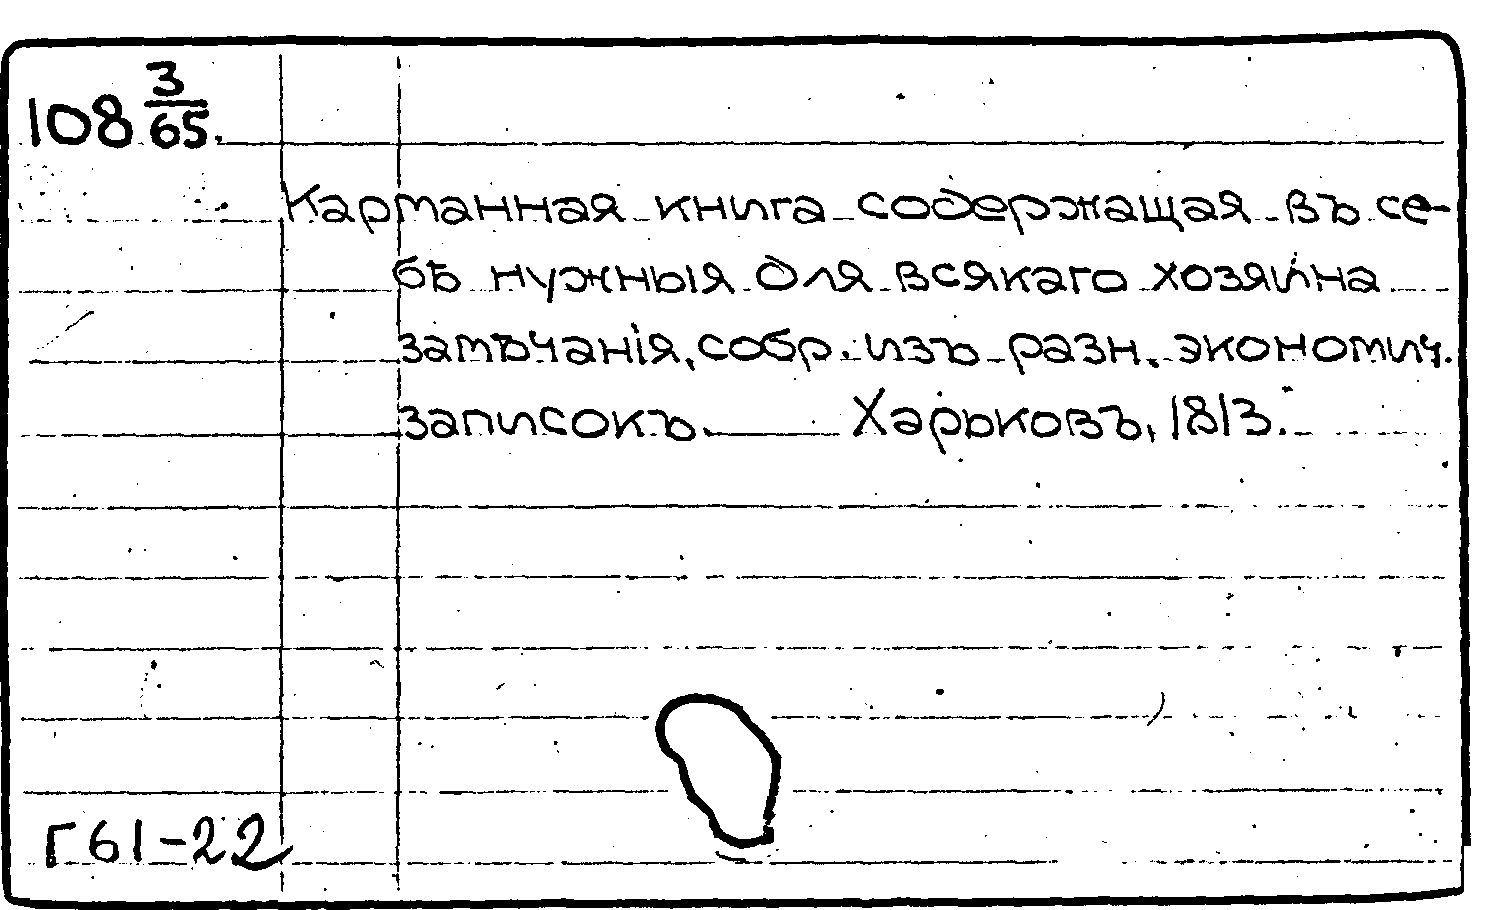 108 3/65.
Карманная книга содержащая въ се-
бѣ нужныя для всякаго хозяина
замѣчанія, собр. изъ разн. экономич.
записокъ. Харьковъ, 1813.
Г61-22